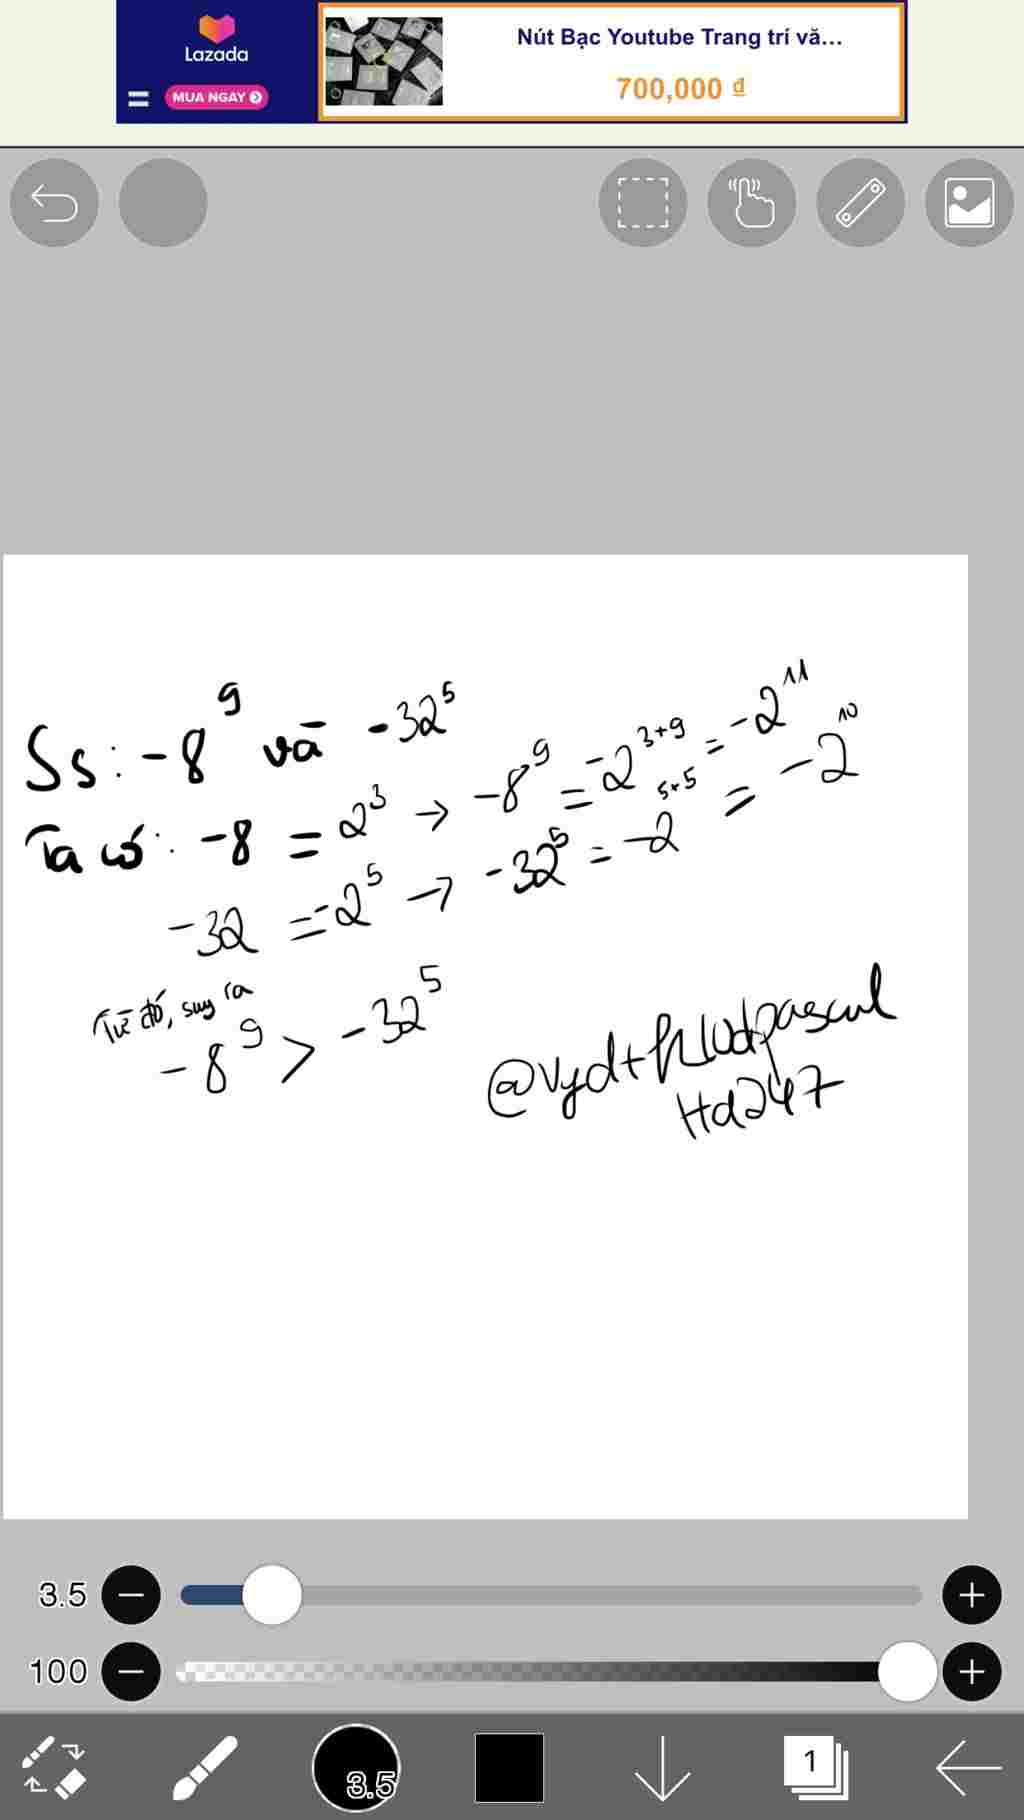 Lazada
MUA NGAY
Nút Bạc Youtube Trang trí vă...
700,000 ₫
Ss: -8⁹ và -32⁵
Ta có: -8 = 2³ → -8⁹ = -2³⁺⁹ = -2¹¹
-32 = -2⁵ → -32⁵ = -2⁵⁺⁵ = -2¹⁰
Từ đó, suy ra
-8⁹ > -32⁵
Hd247
3.5
100
3.5
1